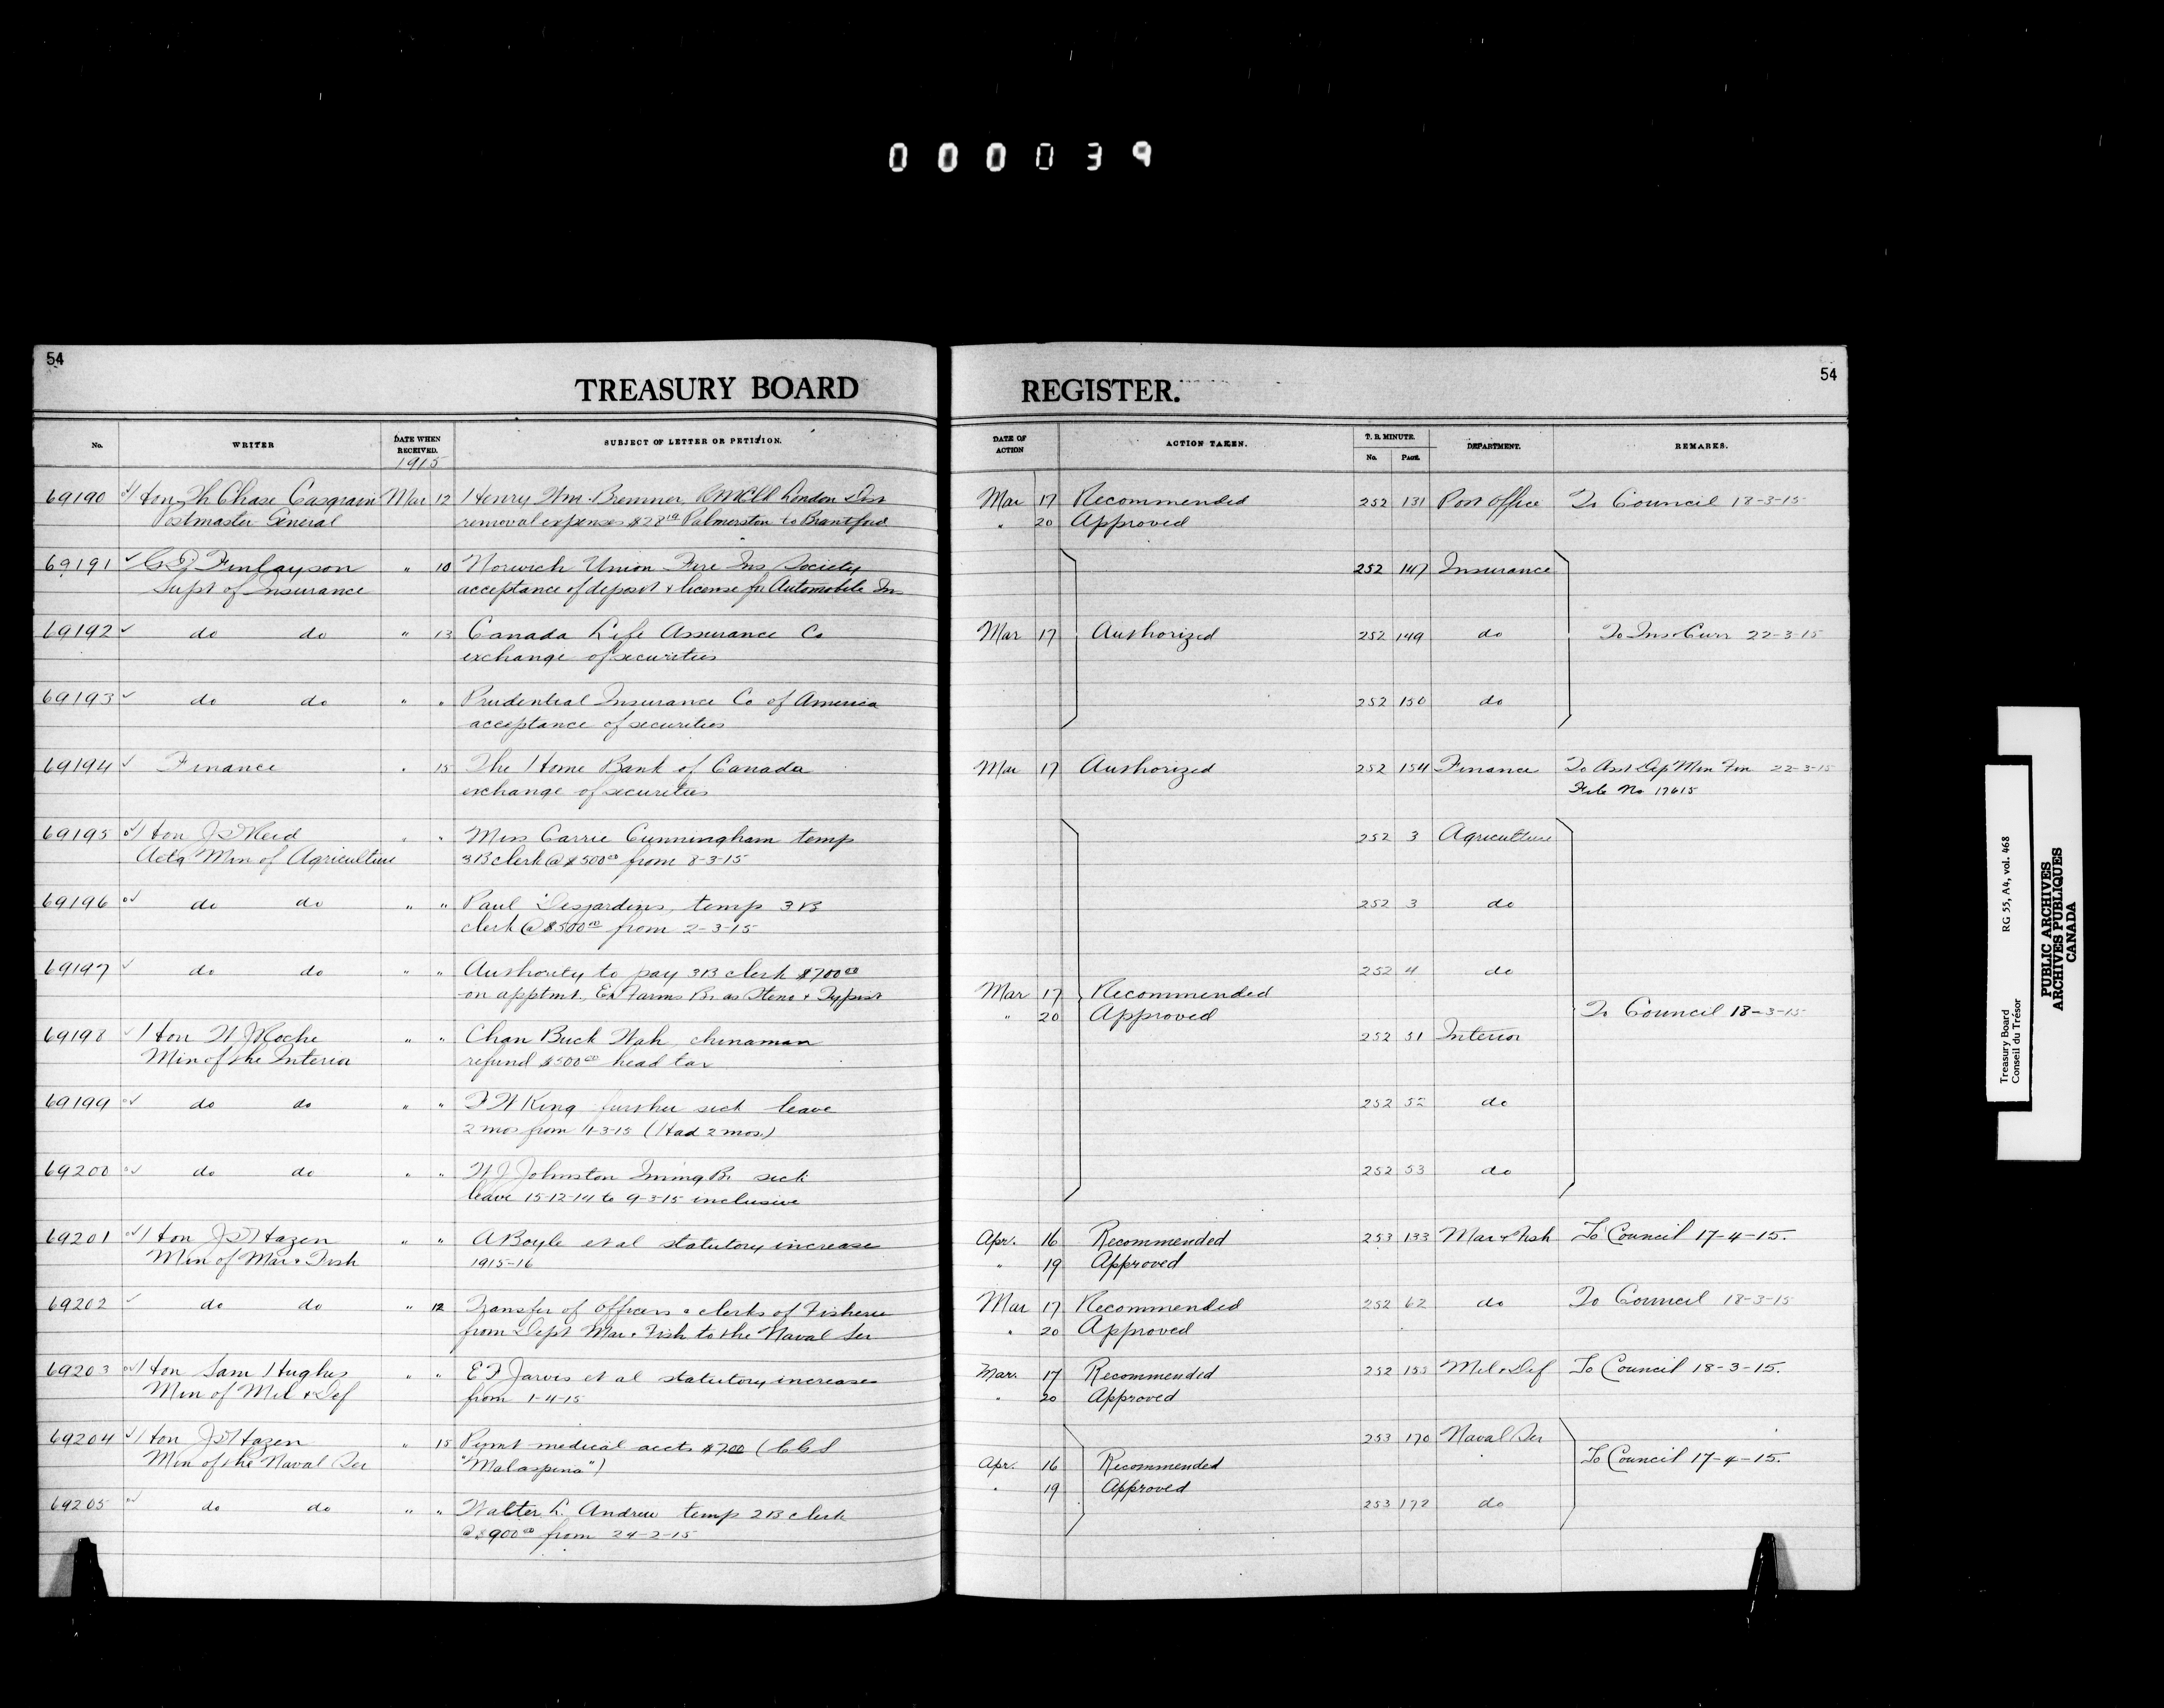 000039
54
TREASURY BOARD
No.
WRITER
DATE WHEN RECEIVED.
1915
SUBJECT OF LETTER OR PETITION.
69190 Hon Th Chase Casgrain Mar 12 Henry Wm. Bremner London Dist
Postmaster General removal expenses $28 Palmerston to Brantford
69191 G D Finlayson " 10 Norwich Union Fire Ins Society
Supt of Insurance acceptance of deposit & license for Automobile Ins
69192 do do " 13 Canada Life Assurance Co
exchange of securities
69193 do do " " Prudential Insurance Co of America
acceptance of securities
69194 Finance " 15 The Home Bank of Canada
exchange of securities
69195 Hon J D Reid " " Miss Carrie Cunningham temp
Actg Min of Agriculture 3B clerk @ $500 00 from 8-3-15
69196 do do " " Paul Desjardins, temp 3B
clerk @ $500 00 from 2-3-15
69197 do do " " Authority to pay 3B clerk $700 00
on apptmt, Ex Farms Br. as Steno & Typist
69198 Hon W J Roche " " Chan Buck Wah, chinaman
Min of the Interior refund $500 00 head tax
69199 do do " " F W King further sick leave
2 mos from 11-3-15 (Had 2 mos.)
69200 do do " " W J Johnston Immig Br. sick
leave 15-12-14 to 9-3-15 inclusive
69201 Hon J D Hazen " " A Boyle et al statutory increase
Min of Mar & Fish 1915-16
69202 do do " 12 Transfer of officers & clerks of Fisheries
from Dept Mar & Fish to the Naval Ser
69203 Hon Sam Hughes " " E F Jarvis et al statutory increases
Min of Mil & Def from 1-4-15
69204 Hon J D Hazen " 15 Pymt medical accts $7.00 (CGS
Min of the Naval Ser "Malaspina")
69205 do do " " Walter L. Andrew temp 2B clerk
@ $900 00 from 24-2-15
54
REGISTER.
DATE OF ACTION
ACTION TAKEN.
T. B. MINUTE.
No. PAGE.
DEPARTMENT.
REMARKS.
Mar 17 Recommended 252 131 Post Office To Council 18-3-15
" 20 Approved
252 147 Insurance
Mar 17 Authorized 252 149 do To Ins & Curr 22-3-15
252 150 do
Mar 17 Authorized 252 154 Finance To Asst Dep Min Fin 22-3-15
File No 17615
252 3 Agriculture
252 3 do
252 4 do
Mar 17 Recommended
" 20 Approved To Council 18-3-15
252 51 Interior
252 52 do
252 53 do
Apr. 16 Recommended 253 133 Mar & Fish To Council 17-4-15.
" 19 Approved
Mar 17 Recommended 252 62 do To Council 18-3-15
" 20 Approved
Mar. 17 Recommended 252 155 Mil & Def To Council 18-3-15.
" 20 Approved
253 170 Naval Ser
Apr. 16 Recommended To Council 17-4-15.
" 19 Approved
253 172 do
Treasury Board RG 55, A4, vol. 468
Conseil du Trésor
PUBLIC ARCHIVES
ARCHIVES PUBLIQUES
CANADA